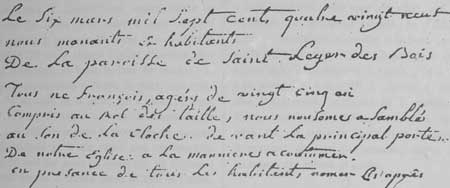 Le Six mars mil Sept cents quatre vingt neuf
nous manants & habitants
De La paroisse de Saint Leger des Bois
Tous ne françois, agérs de vingt cinq an
Compris au Rol des Taille, nous nousomes a Samblé
au Son de La Cloche. devant La principal porte
De notre Eglise. a La manniere acoutumer.
en presance de tous Les habitent nomer Cy après